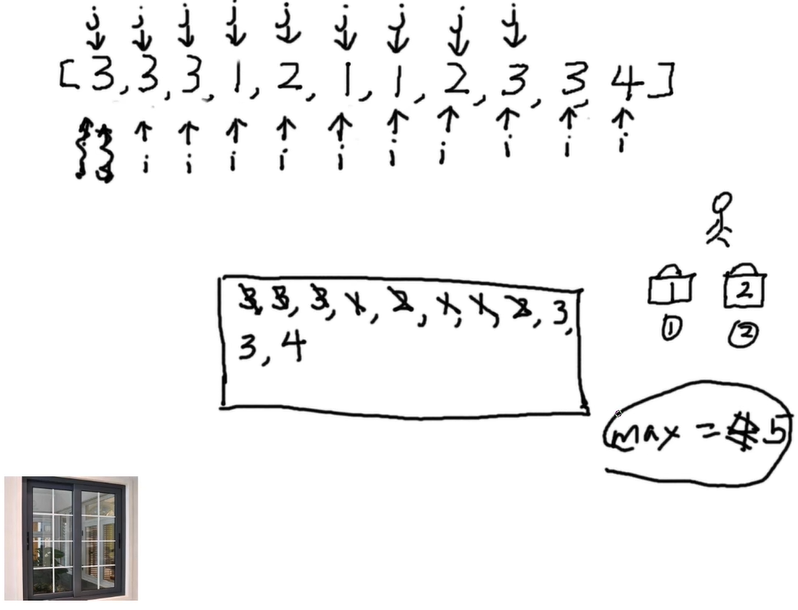 j j j j j j j j j
[3, 3, 3, 1, 2, 1, 1, 2, 3, 3, 4]
i i i i i i i i i i
3, 3, 3, 1, 2, 1, 1, 2, 3,
3, 4
1 2
① ②
max = 4 5